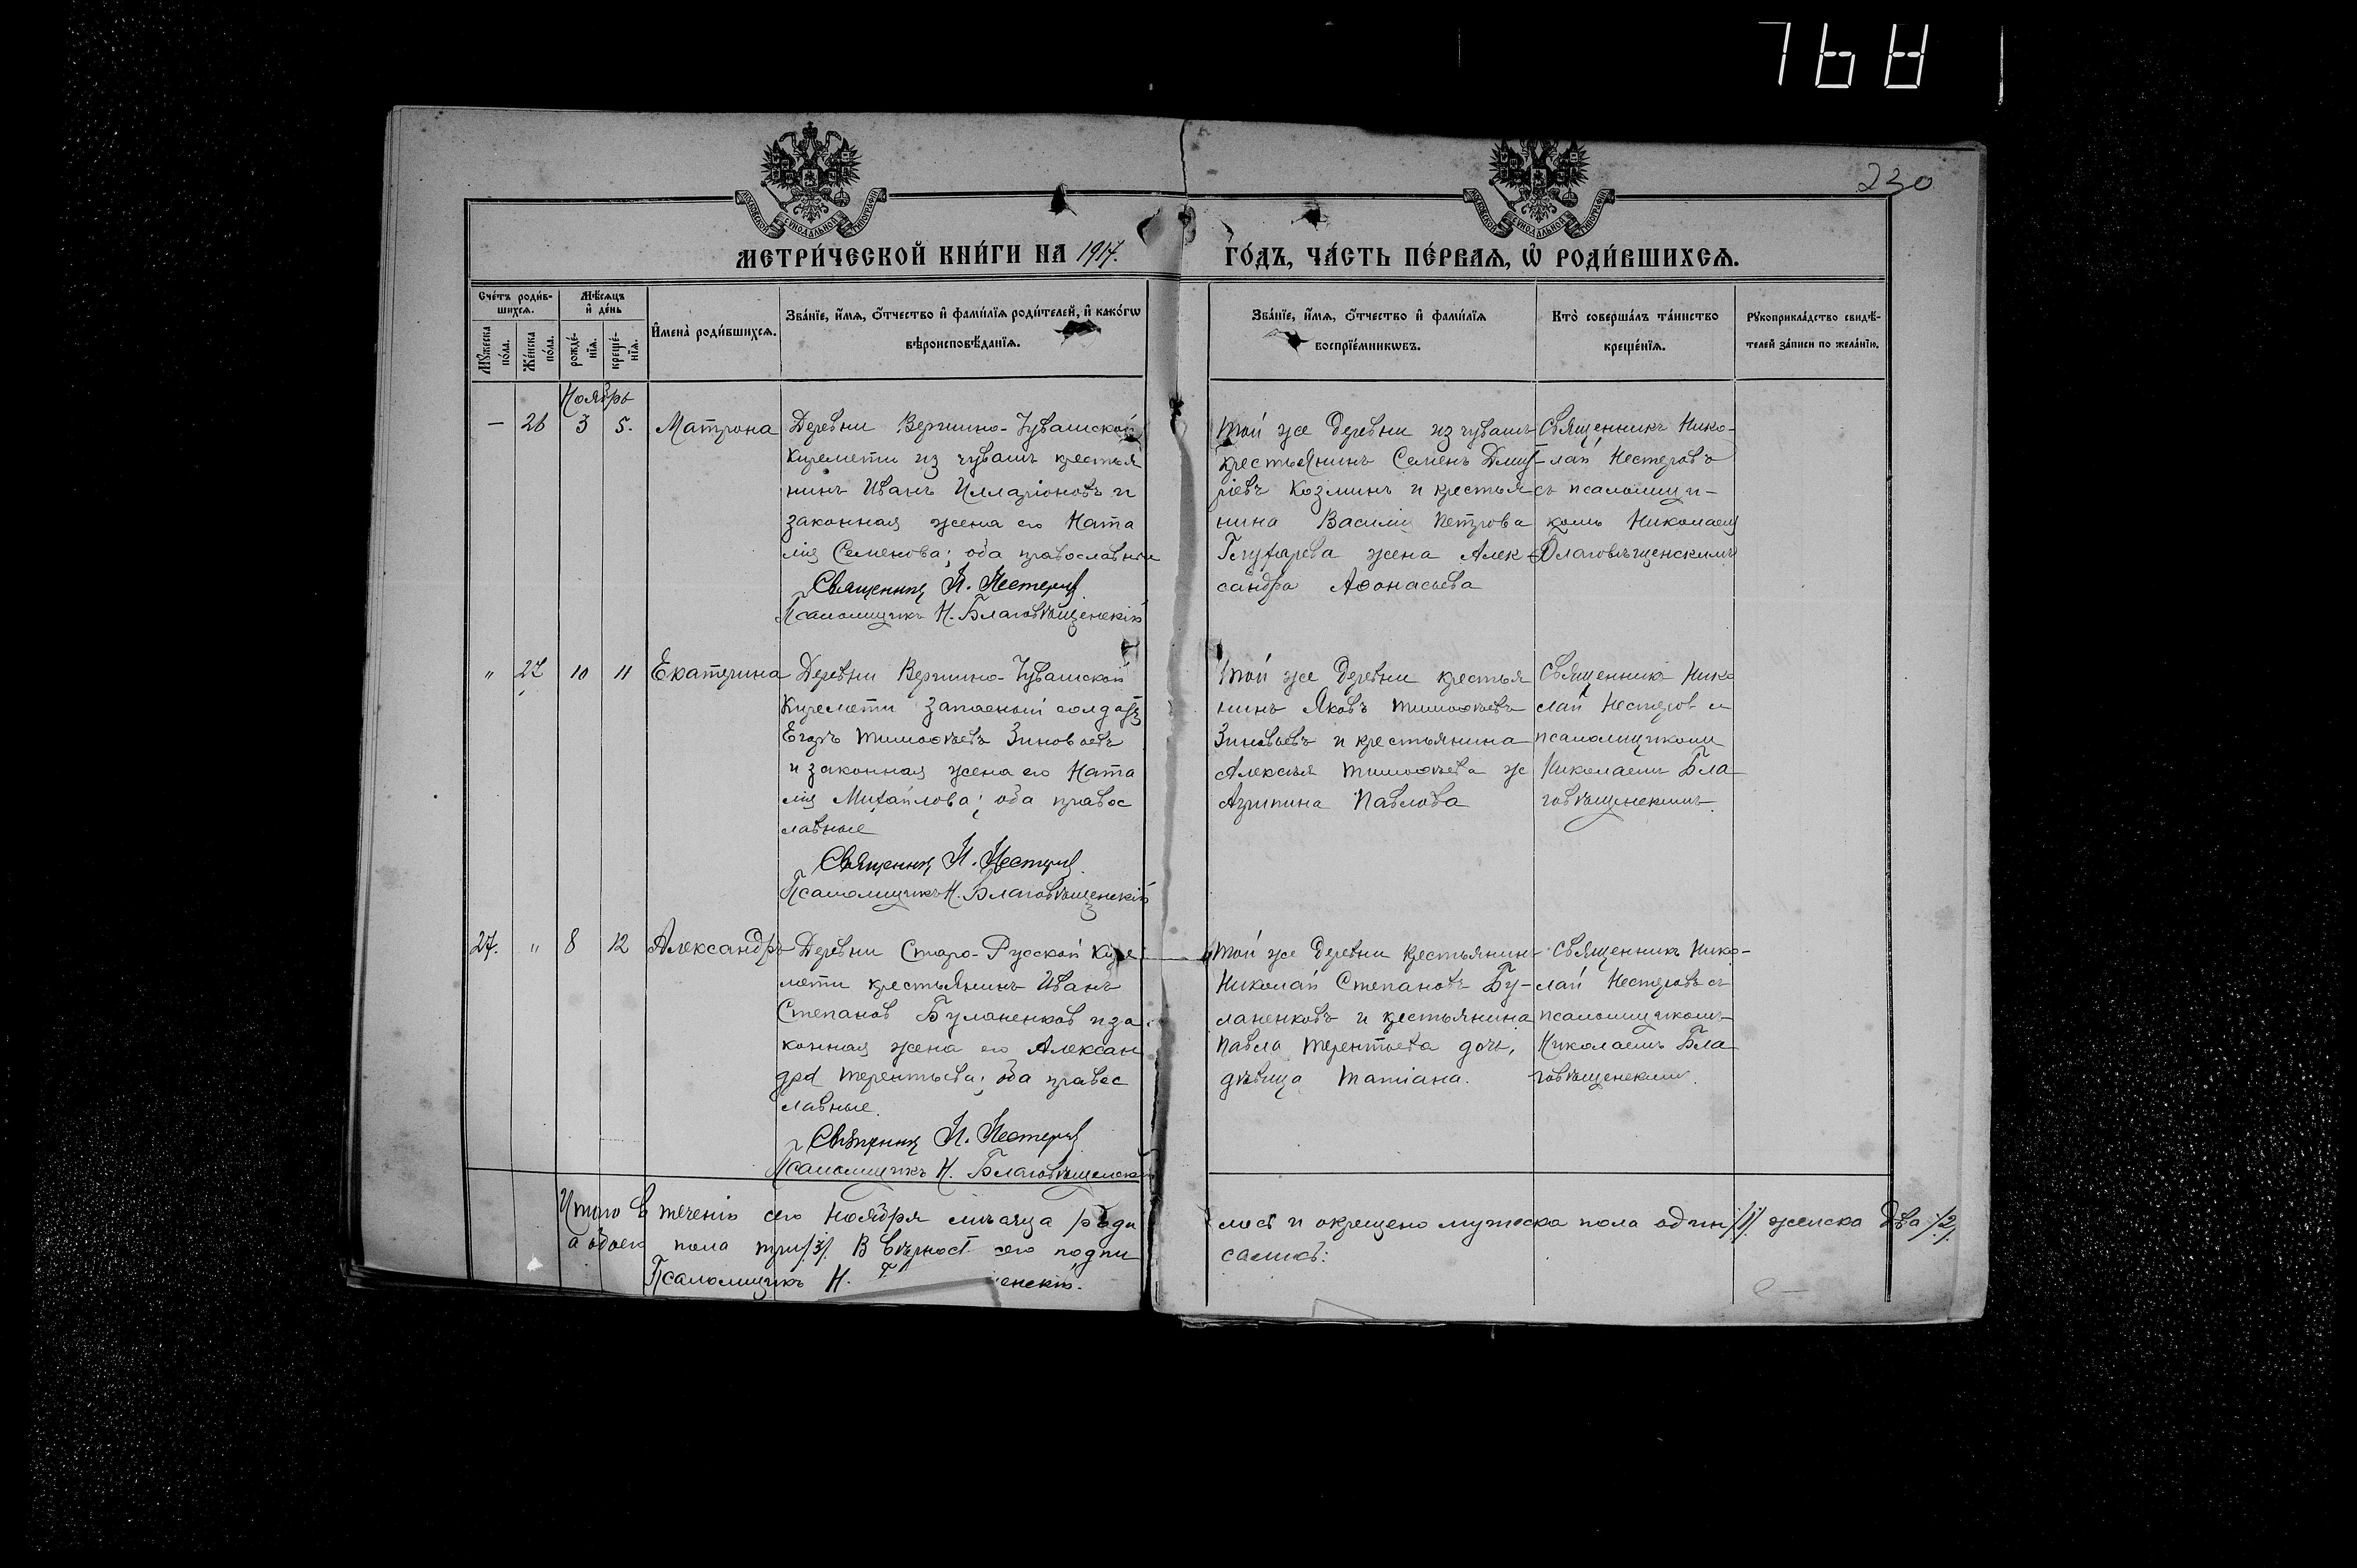 768
230
МЕТРИ́ЧЕСКОЙ КНИ́ГИ НА 1917.
ГО́ДЪ, ЧА́СТЬ ПЕ́РВАѦ, Ѡ҆ РОДИ́ВШИХСѦ.
Сче́тъ роди́в-
шихсѧ.
Мѣ́сѧцъ
и҆ де́нь
Мꙋ́жеска
по́ла.
Же́нска
по́ла.
рожде́-
нїѧ.
креще́-
нїѧ.
И҆мена̀ роди́вшихсѧ.
Зва́нїе, и҆́мѧ, ѻ҆́тчество и҆ фами́лїѧ роди́телей, и҆ како́гѡ
вѣроисповѣ́данїѧ.
Зва́нїе, и҆́мѧ, ѻ҆́тчество и҆ фами́лїѧ
воспрїе́мникѡвъ.
Кто̀ соверша́лъ та́инство
креще́нїѧ.
Рꙋкоприкла́дство свидѣ́-
телей за́писи по жела́нїю.
Ноябрь
— 26 3 5. Матрона
Деревни Вершино-Чувашской
Киремети из чувашъ крестья
нинъ Иванъ Илларіоновъ и
законная жена его Ната
лія Семенова; оба православные
Священник Н. Нестеров
Псаломщикъ Н. Благовѣщенскій
Той же деревни из чувашъ
крестьянинъ Семенъ Дмит-
ріевъ Козминъ и крестья
нина Василія Петрова
жена Алек-
сандра Аѳонасьева
Священникъ Нико-
лай Нестеровъ
съ псаломщи-
комъ Николаем
Благовѣщенскимъ
" 27 10 11 Екатерина
Деревни Вершино-Чувашской
Киремети запасный солдатъ
Егоръ Тимоѳѣевъ Зиновьевъ
и законная жена его Ната
лія Михайлова; оба правос
лавные
Священник Н. Нестеров
Псаломщикъ Н. Благовѣщенскій
Той же деревни крестья
нинъ Яковъ Тимоѳѣевъ
Зиновьевъ и крестьянина
Алексѣя Тимоѳѣева ж
Агрипина Павлова
Священникъ Нико
лай Нестеров с
псаломщиком
Николаемъ Бла-
говѣщенскимъ
27. " 8 12 Александръ
Деревни Старо-Русской Кире
мети крестьянинъ Иванъ
Степанов Буланенков и за
конная жена его Алексан
дра Терентьева; оба правос
лавные.
Священник Н. Нестеров
Псаломщикъ Н. Благовѣщенскій
Той же деревни крестьянинъ
Николай Степановъ Бу-
ланенковъ и крестьянина
Павла Терентьева дочь,
дѣвица Татіана.
Священникъ Нико-
лай Нестеровъ съ
псаломщикомъ
Николаемъ Бла
говѣщенским
Итого в теченіи сего ноября мѣсяца роди
лось и окрещено мужеска пола один /1/ женска два /2/,
а обоего пола три /3/. В вѣрност сего подпи
сались:
Псаломщикъ Н. енскій.